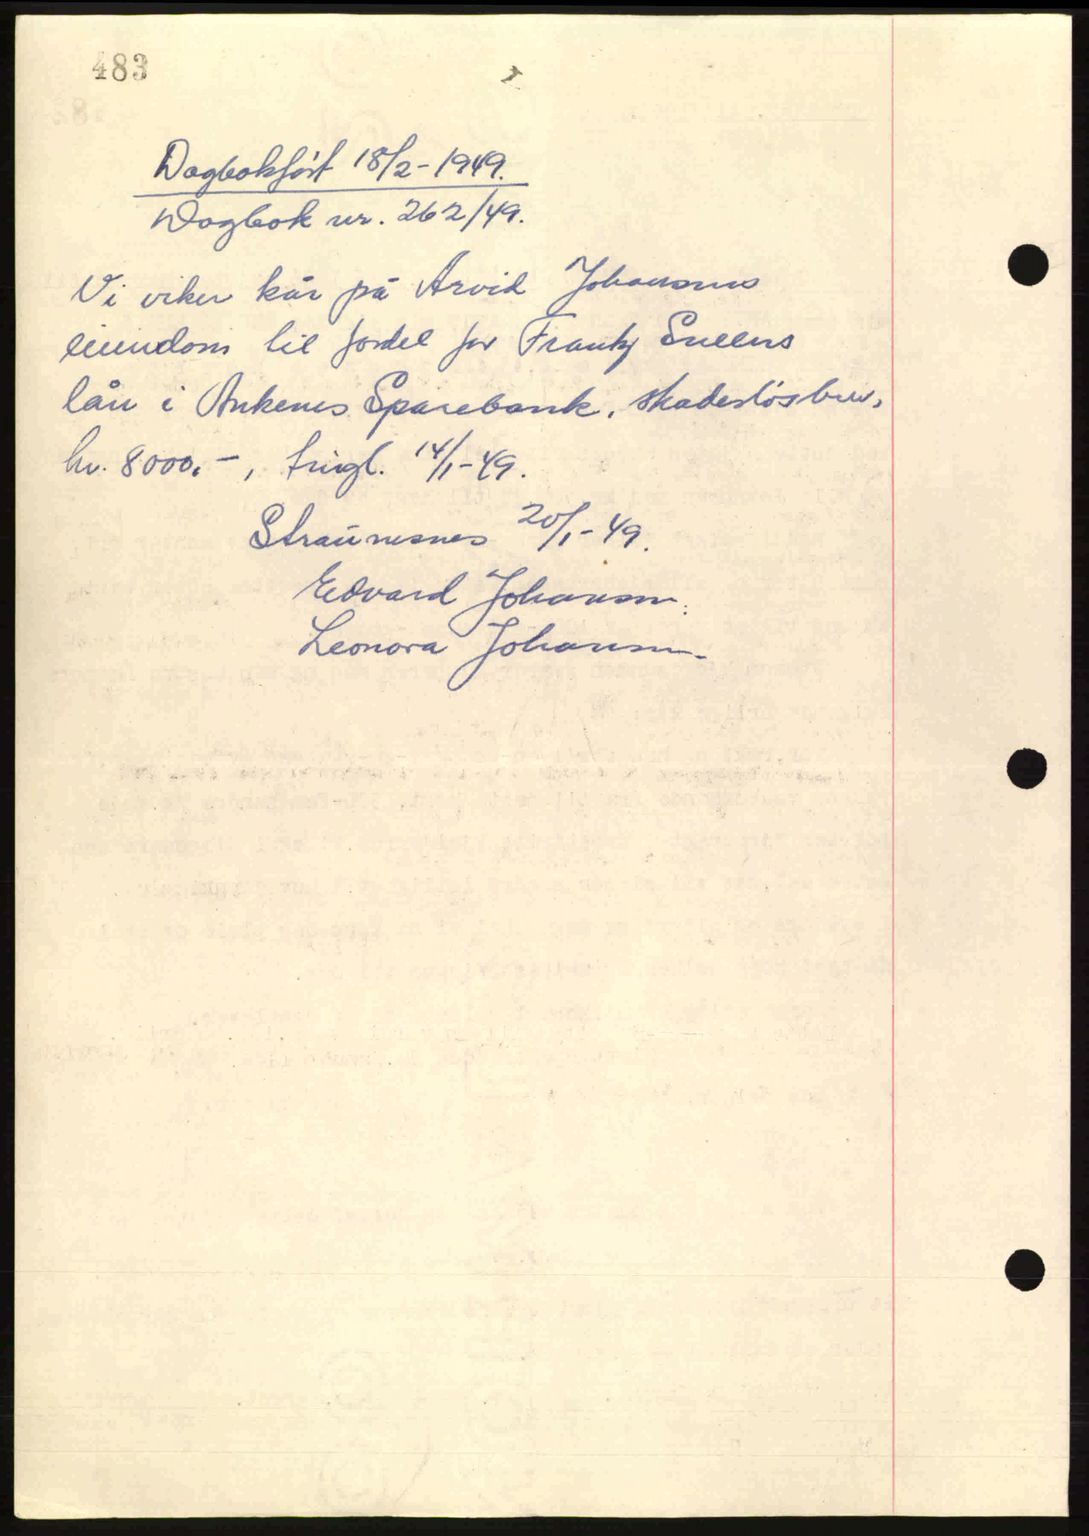 483
Dagbokført 18/2-1949.
Dagbok nr. 262/49.
Vi viker kår på Arvid Johansens
eiendom til fordel for Frantz Sneens
lån i Ankenes Sparebank, skadesløsbrev,
kr. 8000.-, tingl. 14/1-49.
Straumsnes 20/1-49.
Edvard Johansen.
Leonora Johansen.